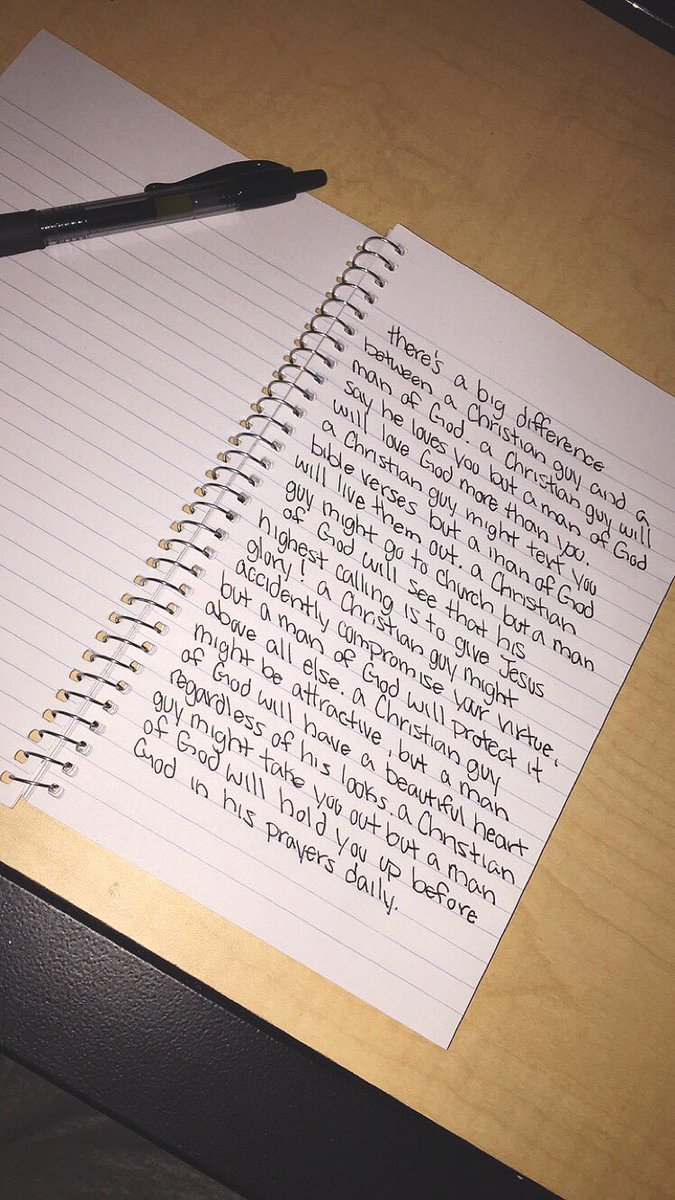 there's a big difference
between a Christian guy and a
man of God. a Christian guy will
say he loves you but a man of God
will love God more than you.
a Christian guy might text you
bible verses but a man of God
will live them out. a Christian
guy might go to church but a man
of God will see that his
highest calling is to give Jesus
glory! a Christian guy might
accidently compromise your virtue,
but a man of God will protect it
above all else. a Christian guy
might be attractive, but a man
of God will have a beautiful heart
regardless of his looks. a Christian
guy might take you out but a man
of God will hold you up before
God in his prayers daily.